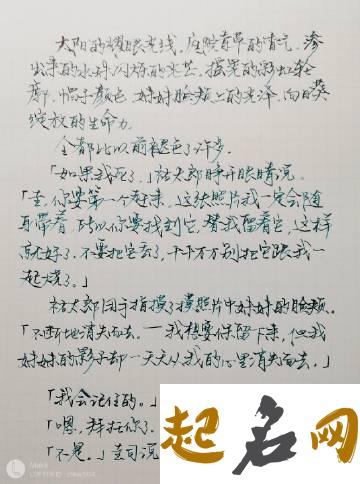 太阳的耀眼光线。庭院青草的青气。渗
出来的水珠闪烁的光芒。摇晃的彩虹轮
廓。帽子颜色。妹妹脸颊上的光泽。向日葵
绽放的生命力。
全都比以前褪色了许多。
「如果我死了。」祐太郎睁开眼睛说。
「圭，你要第一个赶来。这张照片我一定会随
身带着，所以你要找到它，替我留着它，这样
就好了。不要把它丢了，千千万万别把它跟我一
起烧了。」
祐太郎用手指摸了摸照片中妹妹的脸颊。
「不断地消失而去。一我想要保留下来，但我
妹妹的影子却一天天从我的心里消失而去。」
「我会记住的。」
「嗯，拜托你了。
「不是。」圭司说
起名网